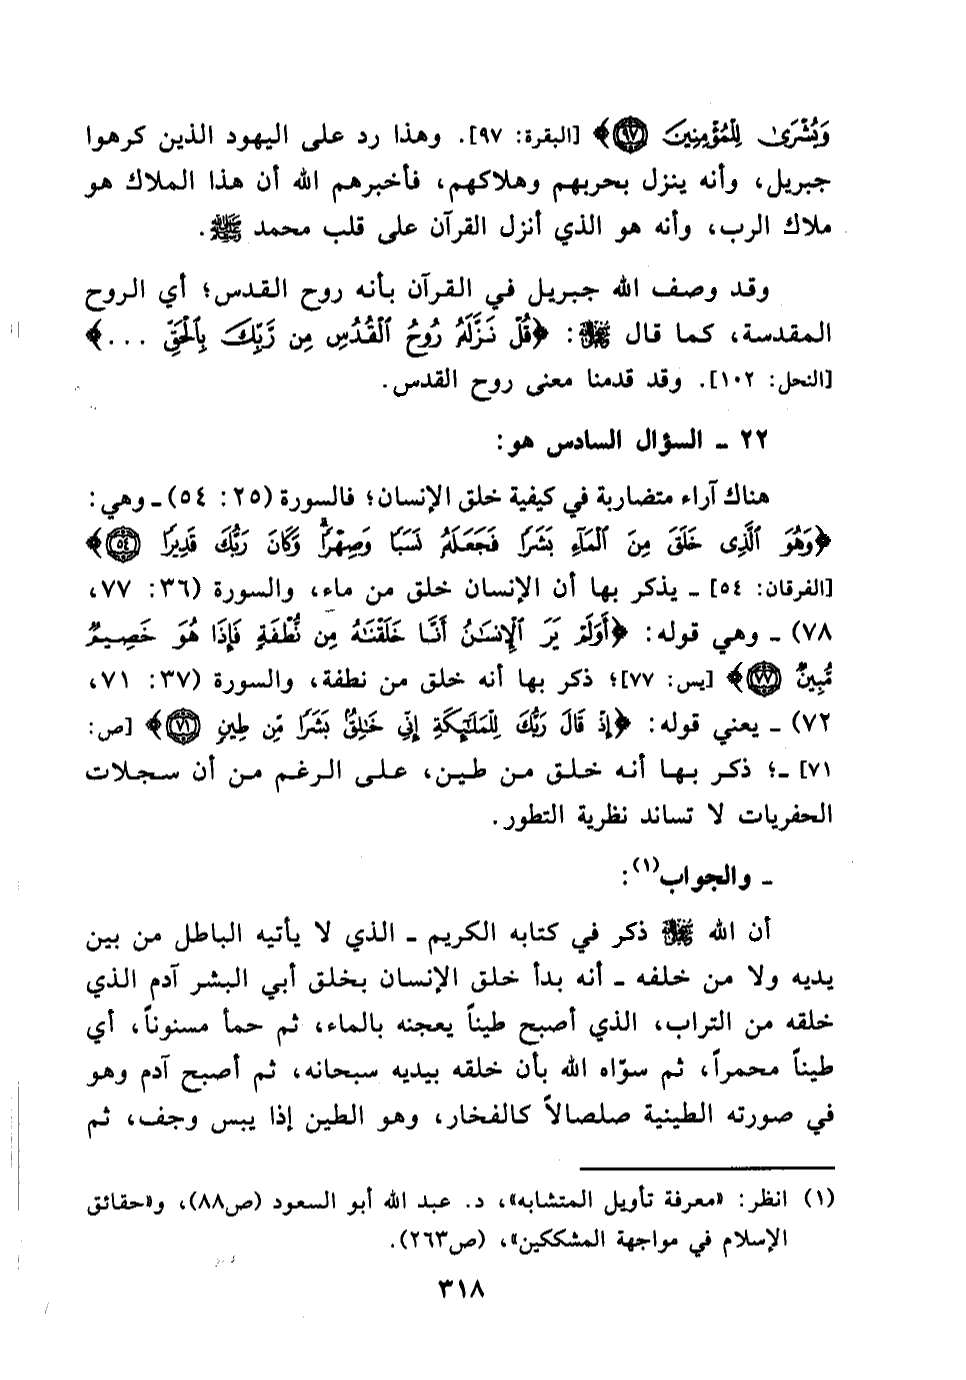 وَبُشْرَىٰ لِلْمُؤْمِنِينَ ﴿٩٧﴾﴾ [البقرة: ٩٧]. وهذا رد على اليهود الذين كرهوا
جبريل، وأنه ينزل بحربهم وهلاكهم، فأخبرهم الله أن هذا الملاك هو
ملاك الرب، وأنه هو الذي أنزل القرآن على قلب محمد ﷺ.
وقد وصف الله جبريل في القرآن بأنه روح القدس؛ أي الروح
المقدسة، كما قال ﷻ: ﴿قُلْ نَزَّلَهُۥ رُوحُ ٱلْقُدُسِ مِن رَّبِّكَ بِٱلْحَقِّ ...﴾
[النحل: ١٠٢]. وقد قدمنا معنى روح القدس.
٢٢ ـ السؤال السادس هو:
هناك آراء متضاربة في كيفية خلق الإنسان؛ فالسورة (٢٥: ٥٤) ـ وهي:
﴿وَهُوَ ٱلَّذِى خَلَقَ مِنَ ٱلْمَآءِ بَشَرًا فَجَعَلَهُۥ نَسَبًا وَصِهْرًاۗ وَكَانَ رَبُّكَ قَدِيرًا ﴿٥٤﴾﴾
[الفرقان: ٥٤] ـ يذكر بها أن الإنسان خلق من ماء، والسورة (٣٦: ٧٧،
٧٨) ـ وهي قوله: ﴿أَوَلَمْ يَرَ ٱلْإِنسَٰنُ أَنَّا خَلَقْنَٰهُ مِن نُّطْفَةٍ فَإِذَا هُوَ خَصِيمٌ
مُّبِينٌ ﴿٧٧﴾﴾ [يس: ٧٧]؛ ذكر بها أنه خلق من نطفة، والسورة (٣٧: ٧١،
٧٢) ـ يعني قوله: ﴿إِذْ قَالَ رَبُّكَ لِلْمَلَٰٓئِكَةِ إِنِّى خَٰلِقٌۢ بَشَرًا مِّن طِينٍ ﴿٧١﴾﴾ [ص:
٧١] ـ؛ ذكر بها أنه خلق من طين، على الرغم من أن سجلات
الحفريات لا تساند نظرية التطور.
ـ والجواب(١):
أن الله ﷻ ذكر في كتابه الكريم ـ الذي لا يأتيه الباطل من بين
يديه ولا من خلفه ـ أنه بدأ خلق الإنسان بخلق أبي البشر آدم الذي
خلقه من التراب، الذي أصبح طيناً يعجنه بالماء، ثم حمأ مسنوناً، أي
طيناً محمراً، ثم سوّاه الله بأن خلقه بيديه سبحانه، ثم أصبح آدم وهو
في صورته الطينية صلصالاً كالفخار، وهو الطين إذا يبس وجف، ثم
(١) انظر: «معرفة تأويل المتشابه»، د. عبد الله أبو السعود (ص٨٨)، و«حقائق
الإسلام في مواجهة المشككين»، (ص٢٦٣).
٣١٨